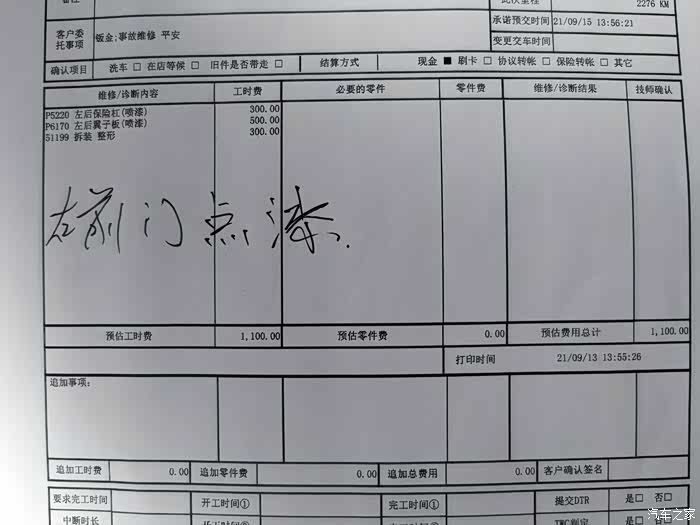 备注
此次里程 2276 KM
承诺预交时间 21/09/15 13:56:21
客户委托事项 钣金;事故维修 平安
变更交车时间
确认项目 洗车 □ 在店等候 □ 旧件是否带走 □ 结算方式 现金 ■ 刷卡 □ 协议转帐 □ 保险转帐 □ 其它
维修/诊断内容 工时费 必要的零件 零件费 维修/诊断结果 技师确认
P5220 左后保险杠(喷漆) 300.00
P6170 左后翼子板(喷漆) 500.00
51199 拆装 整形 300.00
左前门点漆.
预估工时费 1,100.00 预估零件费 0.00 预估费用总计 1,100.00
打印时间 21/09/13 13:55:26
追加事项:
追加工时费 0.00 追加零件费 0.00 追加总费用 0.00 客户确认签名
要求完工时间 开工时间① 完工时间① 提交DTR 是□ 否□
中断时长 是□ 否□
汽车之家